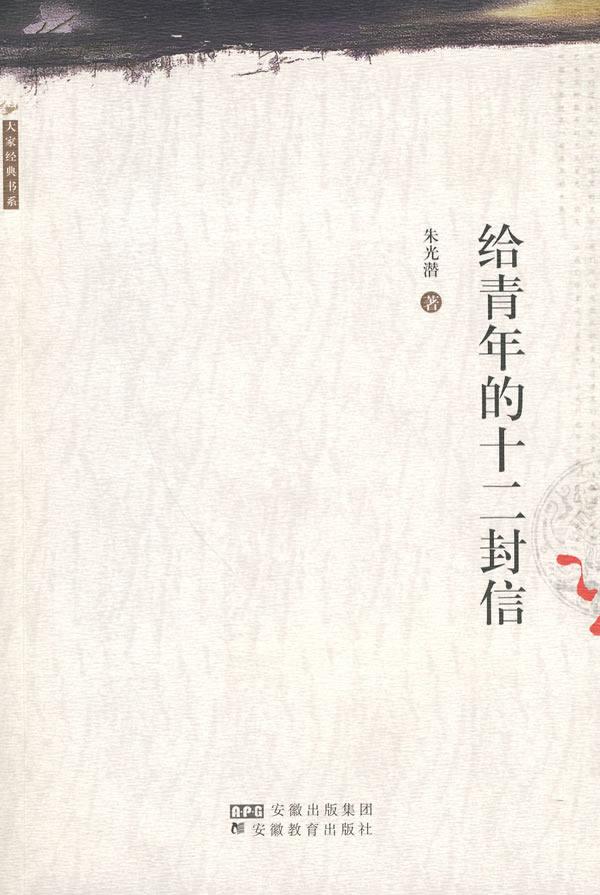 大家经典书系
给青年的十二封信
朱光潜
著
APG 安徽出版集团
安徽教育出版社